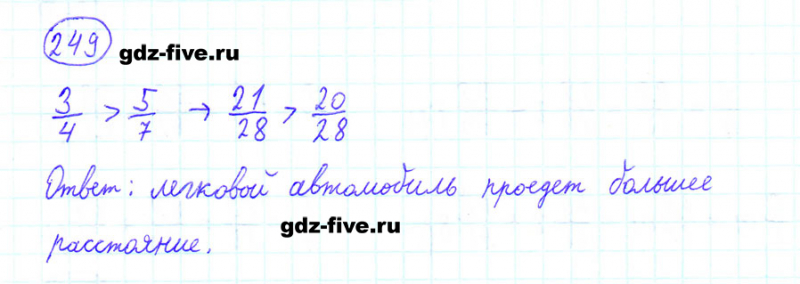 249 gdz-five.ru
3/4 > 5/7 → 21/28 > 20/28
Ответ: легковой автомобиль проедет большее
расстояние.
gdz-five.ru